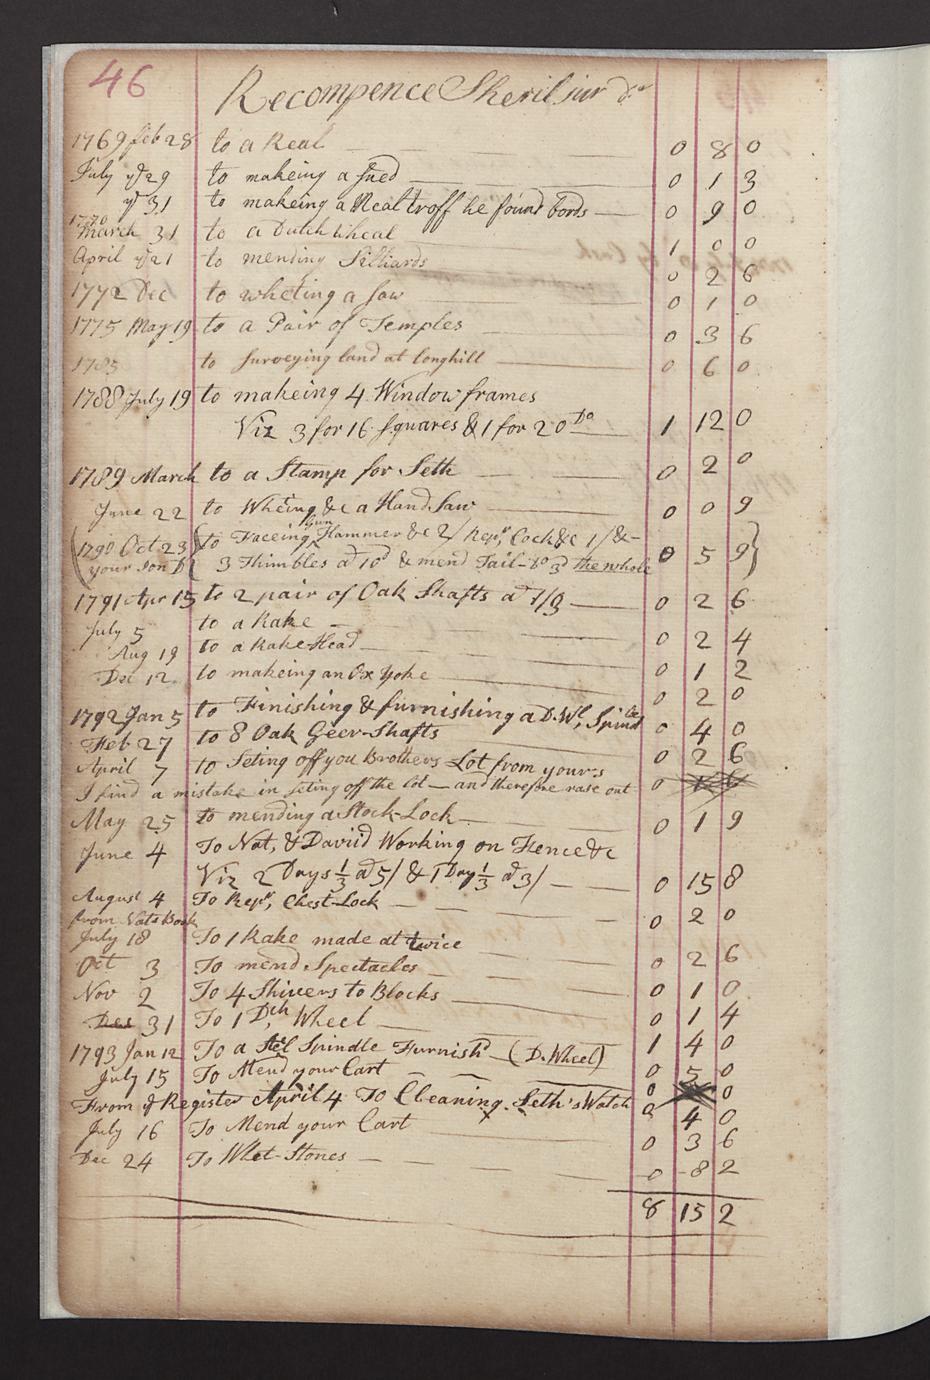 46
Recompence Sheril jur Dr
1769 feb 28 to a Real 0 8 0
July ye 29 to makeing a sued 0 1 3
ye 31 to makeing a Real troff he found bords 0 9 0
1770
March 31 to a Dutch Wheal 1 0 0
April ye 21 to mending Stilliards 0 2 6
1772 Dec to wheting a saw 0 1 0
1775 May 19 to a Pair of Temples 0 3 6
1785 to surveying land at longhill 0 6 0
1788 July 19 to makeing 4 Window frames
Viz 3 for 16 squares & 1 for 20 Do 1 12 0
1789 March to a Stamp for Seth 0 2 0
June 22 to Wheting &c a Hand Saw 0 0 9
(1790 Oct 23 to Faceing Gun Hammer &c 2/ Repr, Cock &c 1/ &-
your son D 3 Thimbles at 10d & mend Tail-Do 3d the whole 0 5 9
1791 Apr 15 to 2 pair of Oak Shafts at 1/3 0 2 6
July 5 to a Rake 0 2 4
Aug 19 to a Rake Head 0 1 2
Dec 12 to makeing an Ox Yoke 0 2 0
1792 Jan 5 to Finishing & furnishing a D. Wl, Spindle 0 4 0
Feb 27 to 8 Oak Geer-Shafts 0 2 6
April 7 to Seting off you Brothers Lot from yours 0
I find a mistake in seting off the lot - and therefore rase out
May 25 to mending a Stock-Lock 0 1 9
June 4 To Nat, & David Working on Fence &c
Viz 2 Days 1/3 at 5/ & 1 Day 1/3 at 3/ 0 15 8
August 4 To Repr, Chest-Lock 0 2 0
from Nats Book
July 18 To 1 Rake made at twice 0 2 6
Oct 3 To mend Spectacles 0 1 0
Nov 2 To 4 Shivers to Blocks 0 1 4
Dec 31 To 1 Dch, Wheel 1 4 0
1793 Jan 12 To a Stel Spindle Furnishd (D. Wheel) 0 5 0
July 15 To Mend your Cart 0 0
From ye Register April 4 To Cleaning Seth's Watch 0 4 0
July 16 To Mend your Cart 0 3 6
Dec 24 To Whet-Stones 0 8 2
8 15 2